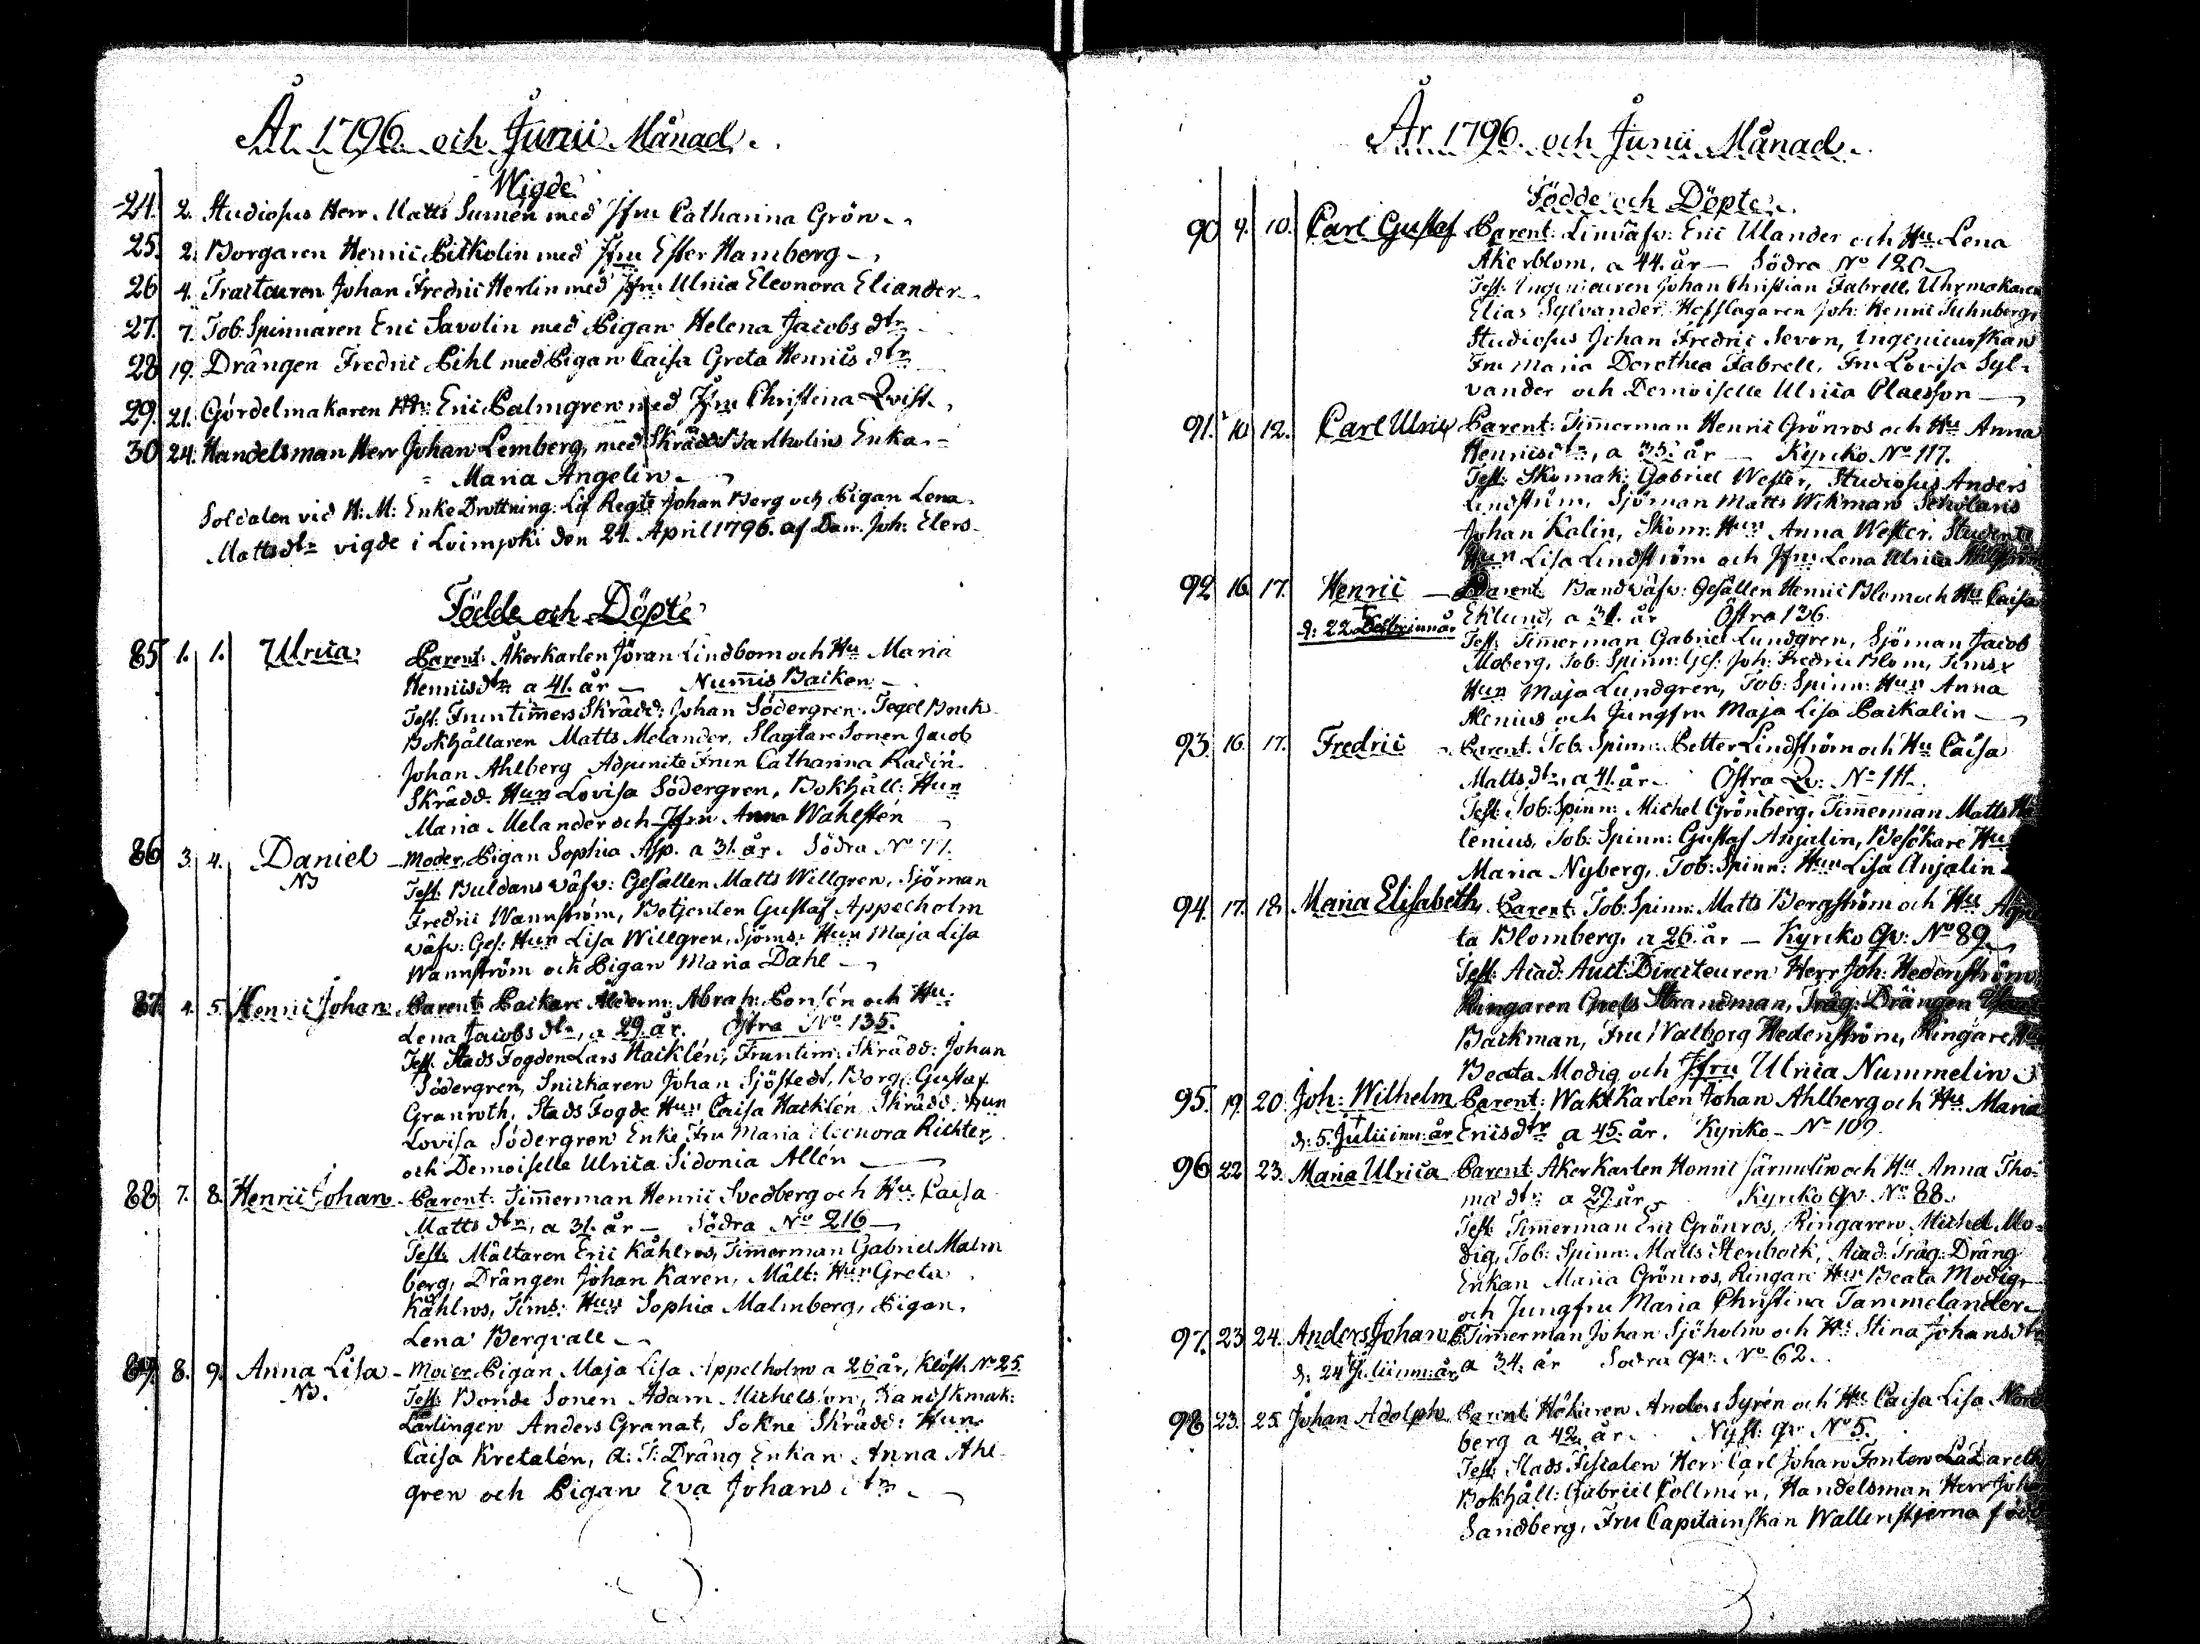 År 1796. och Junii Månad.
Wigde
24. 2. Studiosus Herr Matts Sumén med Jfru Catharina Grön
25. 2. Borgaren Henric Pitkolin med Jfru Ester Hamberg
26 4. Traiteuren Johan Fredric Herlin med Jfru Ulrica Eleonora Eliander
27. 7. Tob. Spinnaren Eric Savolin med Pigan Helena Jacobs dtr
28 19. Drängen Fredric Pihl med Pigan Caisa Greta Henrics dtr
29. 21. Gördelmakaren Eric Palmgren med Jfru Christina Qvist
30 24. Handelsman Herr Johan Lemberg, med Skrädd: Bartholins Enka
Maria Angelin
Soldaten vid H: M: Enke Drottning: Lif Regte Johan Berg och Pigan Lena
Matts dtr vigde i Loimjoki den 24. April 1796. af Dom. Joh: Elers
Födde och Döpte
85 1. 1. Ulrica Parent: Åkerkarlen Jöran Lindbom och Hu Maria
Henricsdtr a 41. år — Nummis Backen
Test: Fruntimmers Skrädd: Johan Södergren. Tegel Bruks
Bokhållaren Matts Melander, Slagtare Sonen Jacob
Johan Ahlberg Adjuncts Frun Catharina Radin
Skrädd. Hun Lovisa Södergren, Bokhåll: Hun
Maria Melander och Jfru Anna Wahlstén
86 3. 4. Daniel Moder, Pigan Sophia Asp. a 31. år. Södra No 77.
NB Test. Buldans väfv: Gesällen Matts Willgren, Sjöman
Fredric Wannström, Betjenten Gustaf Appelholm
väfv: Ges: Hun Lisa Willgren, Sjöms: Hun Maja Lisa
Wannström och Pigan Maria Dahl
87. 4. 5. Henric Johan Parent: Backare Alderm: Abrah: Ponsén och Hu
Lena Jacobs dtr, a 29. år. Östra No 135.
Test. Stads Fogden Lars Hacklén, Fruntim: Skrädd: Johan
Södergren, Snickaren Johan Sjöstedt, Borg: Gustaf
Granroth, Stads Fogde Hun Caisa Hacklén Skrädd. Hun
Lovisa Södergren Enke Fru Maria Eleonora Richter,
och Demoiselle Ulrica Sidonia Allén
88 7. 8. Henric Johan Parent: Timmerman Henric Svedberg och Hu Caisa
Matts dtr, a 31. år — Södra No 216
Test: Mältaren Eric Kåhlros, Timmerman Gabriel Malm
berg, Drängen Johan Karen, Mält: Hun Greta
Kåhlros, Tims: Hun Sophia Malmberg, Pigan
Lena Bergvall
89. 8. 9. Anna Lisa Moder, Pigan Maja Lisa Appelholm a 26 år, Klost: No 25
NB. Test: Bonde Sonen Adam Michelsson, Handskmak:
Lärlingen Anders Granat, Sokne Skrädd: Hun
Caisa Kretalén, A: T: Dräng Enkan Anna Ahl
gren och Pigan Eva Johans dtr
År 1796. och Junii Månad
Födde och Döpte
90 9. 10. Carl Gustaf Parent: Linväfv: Eric Ulander och Hu Lena
Åkerblom, a 44. år — Södra No 120
Test: Ingenieuren Johan Christian Fabrell, Uhrmakaren
Elias Sylvander, Hofslagaren Joh: Henric Suhnberg,
Studiosus Johan Fredric Sevon, Ingenieurskan
Fru Maria Dorothea Fabrell, Fru Lovisa Syl-
vander och Demoiselle Ulrica Claesson
91. 10. 12. Carl Ulric Parent: Timmerman Henric Grönros och Hu Anna
Henricsdtr, a 35. år — Kyrcko No 117.
Test: Skomak: Gabriel Wester, Studiosus Anders
Lindström, Sjöman Matts Wikman Scholaris
Johan Kalin, Skom: Hun Anna Wester, Students
Hun Lisa Lindström och Jfru Lena Ulrica
92 16. 17. Henric Parent Bandväfv: Gesällen Henric Blom och Hu Caisa
d: 22 Decbr inn. år Eklund, a 31. år Östra 136
Test: Timmerman Gabriel Lundgren, Sjöman Jacob
Moberg, Tob: Spinn: Ges: Joh: Fredric Blom, Tims:
Hun Maja Lundgren, Tob: Spinn: Hun Anna
Alenius och Jungfru Maja Lisa Packalin
93. 16. 17. Fredric Parent: Tob. Spinn: Petter Lindström och Hu Caisa
Matts dtr, a 41. år Östra Qv: No 111.
Test: Tob: Spinn: Michel Grönberg, Timmerman Matts
lenius, Tob: Spinn: Gustaf Anjalin, Besökare Hun
Maria Nyberg, Tob: Spinn: Hun Lisa Anjalin
94. 17. 18. Maria Elisabeth, Parent: Tob: Spinn: Matts Bergström och Hu Agne
ta Blomberg, a 26. år — Kyrcko Qv: No 89
Test: Acad: Auct: Directeuren Herr Joh: Hedenström
Ringaren Grels Strandman, Träg: Drängen
Backman, Fru Walborg Hedenström, Ringare Hu
Beata Modig och Jfru Ulrica Nummelin
95. 19. 20. Joh: Wilhelm Parent: Waktkarlen Johan Ahlberg och Hu Maria
d: 5. Julii inn: år Ericsdtr a 45. år. Kyrko - No 109
96 22 23. Maria Ulrica Parent: Åkerkarlen Henric Järnelin och Hu Anna Tho-
ma dtr a 27. år Kyrcko Qv. No 88.
Test: Timmerman Eric Grönros, Ringaren Michel Mo-
dig, Tob: Spinn: Matts Stenbock, Acad: Träg: Dräng
Enkan Maria Grönros, Ringare Hun Beata Modig,
och Jungfru Maria Christina Tammelander
97. 23 24. Anders Johan P. Timmerman Johan Sjöholm och Hu Stina Johansdtr
d: 24 Julii inn: år a 34. år Södra Qv: No 62.
98 23. 25. Johan Adolph Parent: Hökaren Anders Syrén och Hu Caisa Lisa Nord
berg a 42. år. Nyst: Qv No 5.
Test: Stads Fiscalen Herr Carl Johan Fonten Lazareth
Bokhåll: Gabriel Collmén, Handelsman Herr Joh
Sandberg, Fru Capitainskan Wallenstjerna född